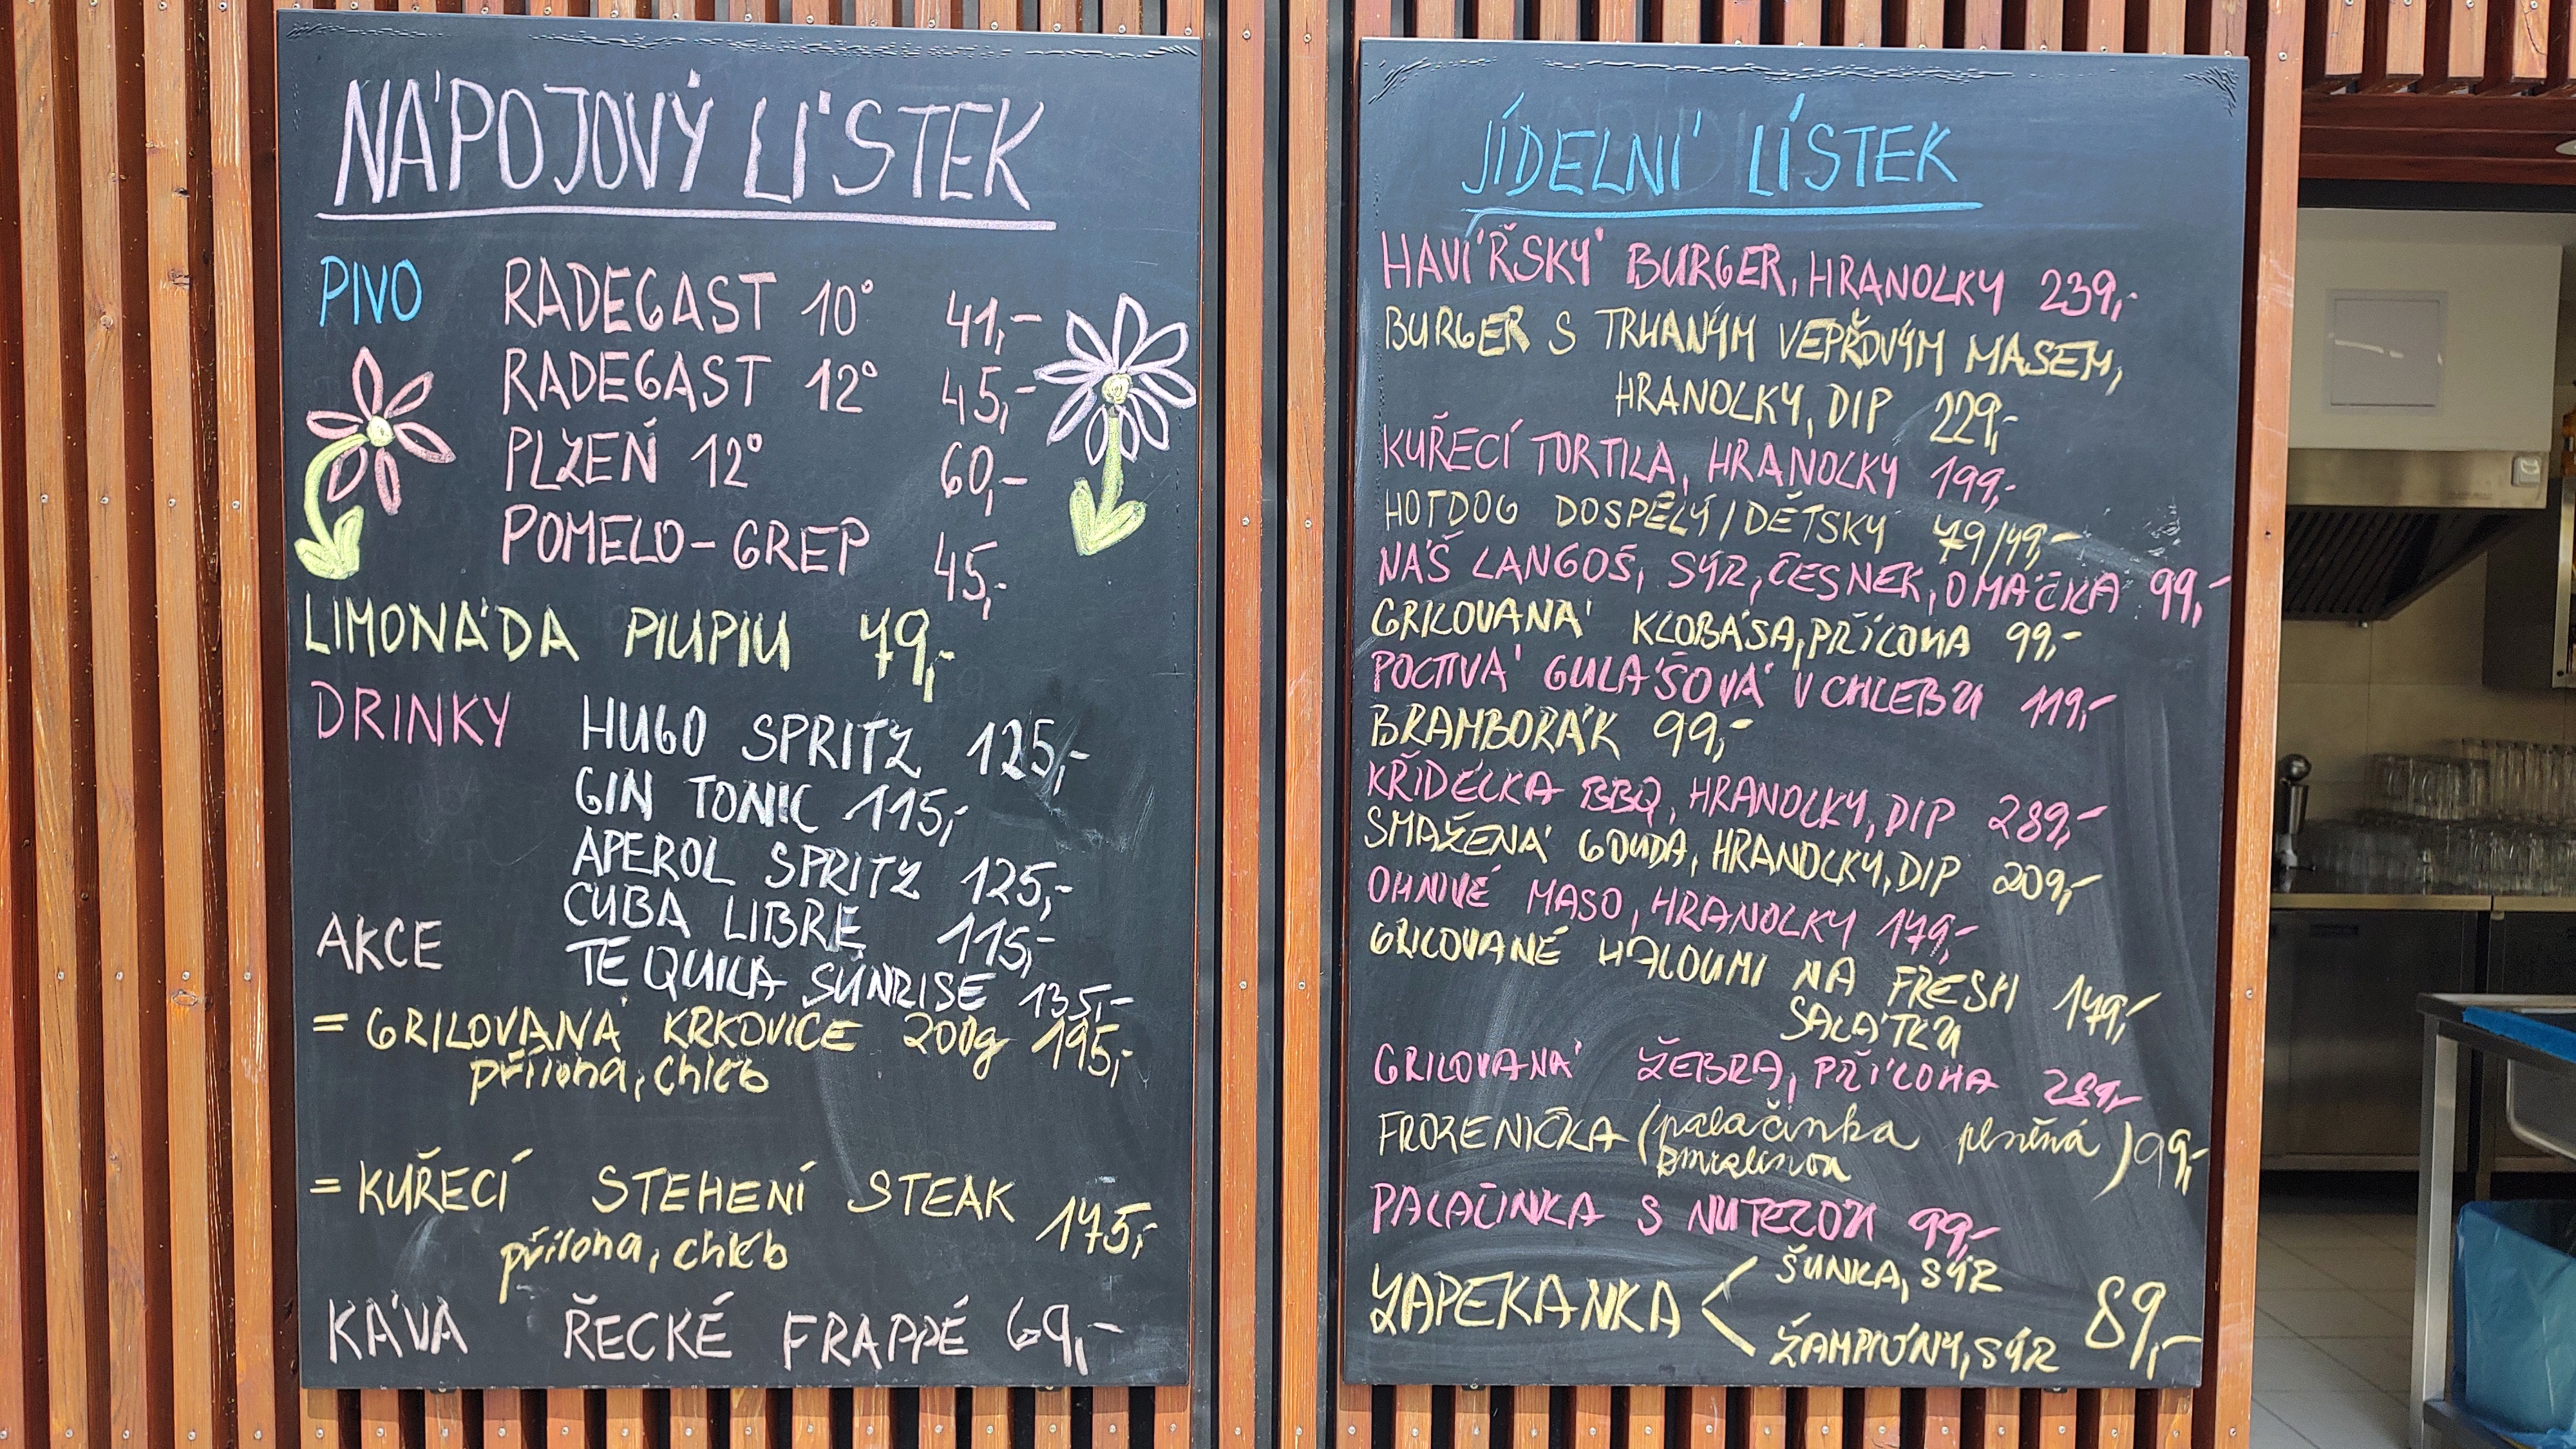 NÁPOJOVÝ LÍSTEK
PIVO RADEGAST 10° 41,-
RADEGAST 12° 45,-
PLZEŇ 12° 60,-
POMELO-GREP 45,-
LIMONÁDA PIUPIU 79,-
DRINKY HUGO SPRITZ 125,-
GIN TONIC 115,-
APEROL SPRITZ 125,-
CUBA LIBRE 115,-
AKCE TEQUILA SUNRISE 135,-
= GRILOVANÁ KRKOVICE 200g 195,-
příloha, chléb
= KUŘECÍ STEHENÍ STEAK 175,-
příloha, chléb
KÁVA ŘECKÉ FRAPPÉ 69,-
JÍDELNÍ LÍSTEK
HAVÍŘSKÝ BURGER, HRANOLKY 239,-
BURGER S TRHANÝM VEPŘOVÝM MASEM,
HRANOLKY, DIP 229,-
KUŘECÍ TORTILA, HRANOLKY 199,-
HOTDOG DOSPĚLÝ/DĚTSKÝ 79/49,-
NÁŠ LANGOŠ, SÝR, ČESNEK, OMÁČKA 99,-
GRILOVANÁ KLOBÁSA, PŘÍLOHA 99,-
POCTIVÁ GULÁŠOVÁ V CHLEBU 119,-
BRAMBORÁK 99,-
KŘIDÉLKA BBQ, HRANOLKY, DIP 289,-
SMAŽENÁ GOUDA, HRANOLKY, DIP 209,-
OHNIVÉ MASO, HRANOLKY 179,-
GRILOVANÉ HALOUMI NA FRESH 179,-
SALÁTKU
GRILOVANÁ ŽEBRA, PŘÍLOHA 289,-
FROZENIČKA (palačinka plněná ) 99,-
zmrzlinou
PALAČINKA S NUTELOU 99,-
ZAPEKANKA < ŠUNKA, SÝR 89,-
ŽAMPIÓNY, SÝR